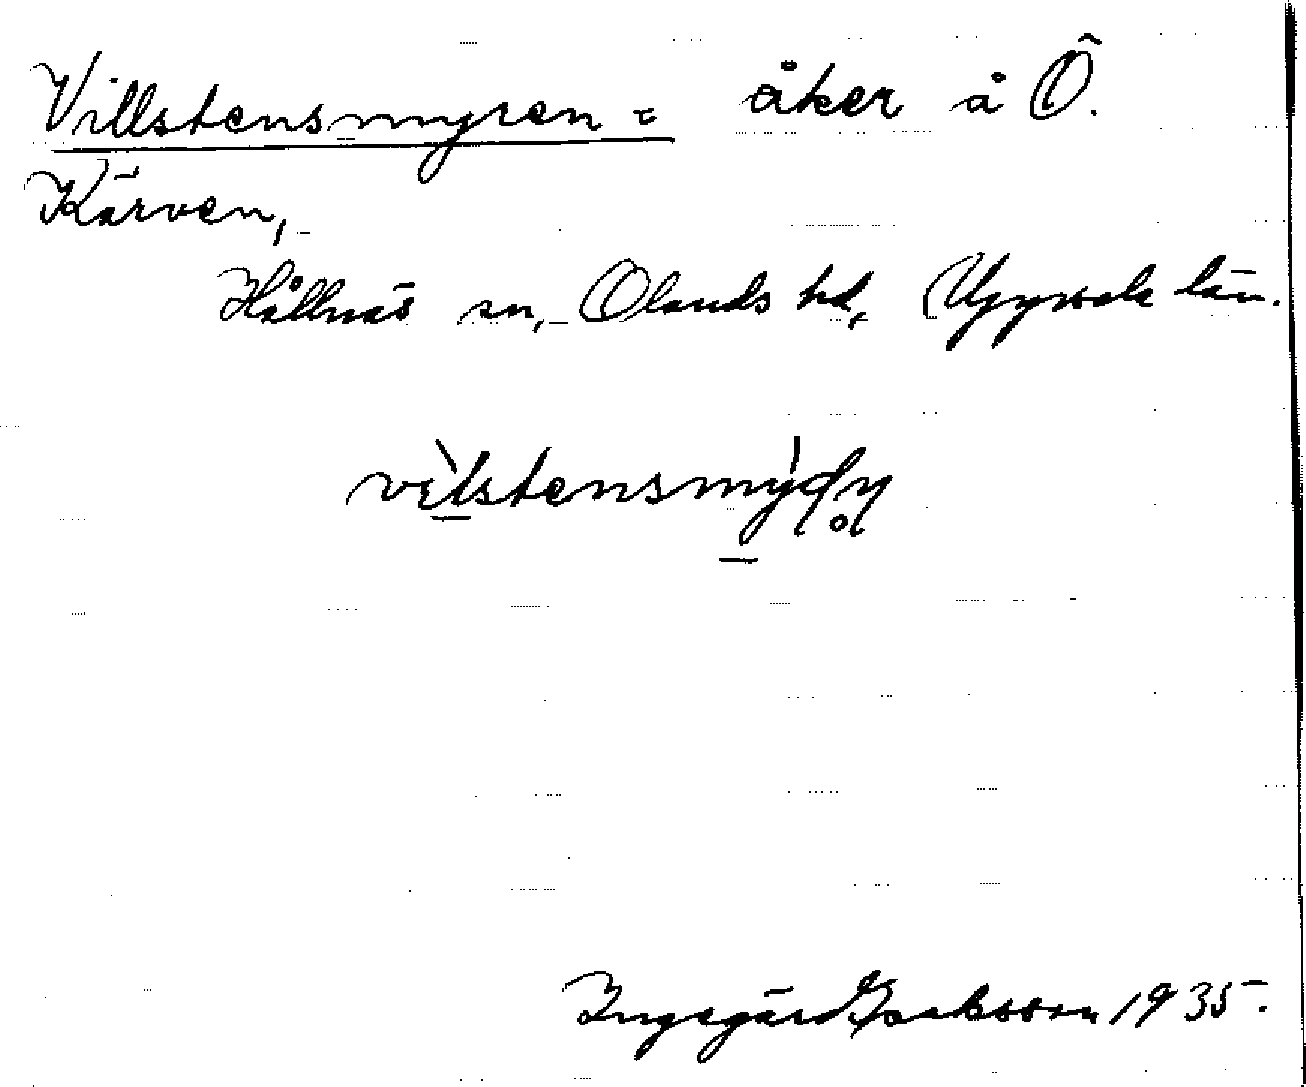 Villstensmyren = åker å Ö.
Kärven,
Hållnäs sn, Olands hd, Uppsala län.
Isaksson 1935.